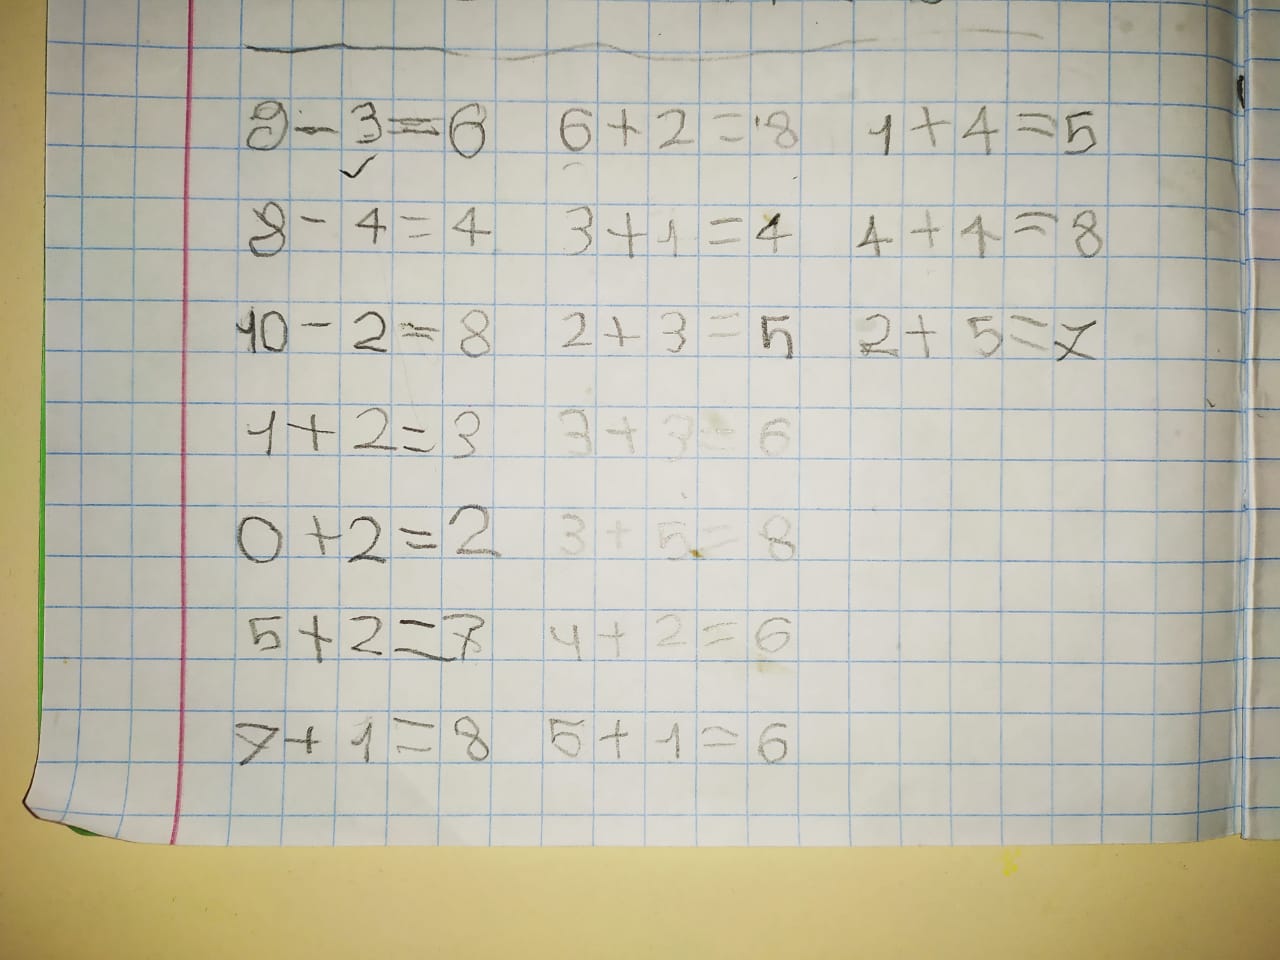 9 - 3 = 6 6 + 2 = 8 1 + 4 = 5
8 - 4 = 4 3 + 1 = 4 4 + 4 = 8
10 - 2 = 8 2 + 3 = 5 2 + 5 = 7
1 + 2 = 3 3 + 3 = 6
0 + 2 = 2 3 + 5 = 8
5 + 2 = 7 4 + 2 = 6
7 + 1 = 8 5 + 1 = 6